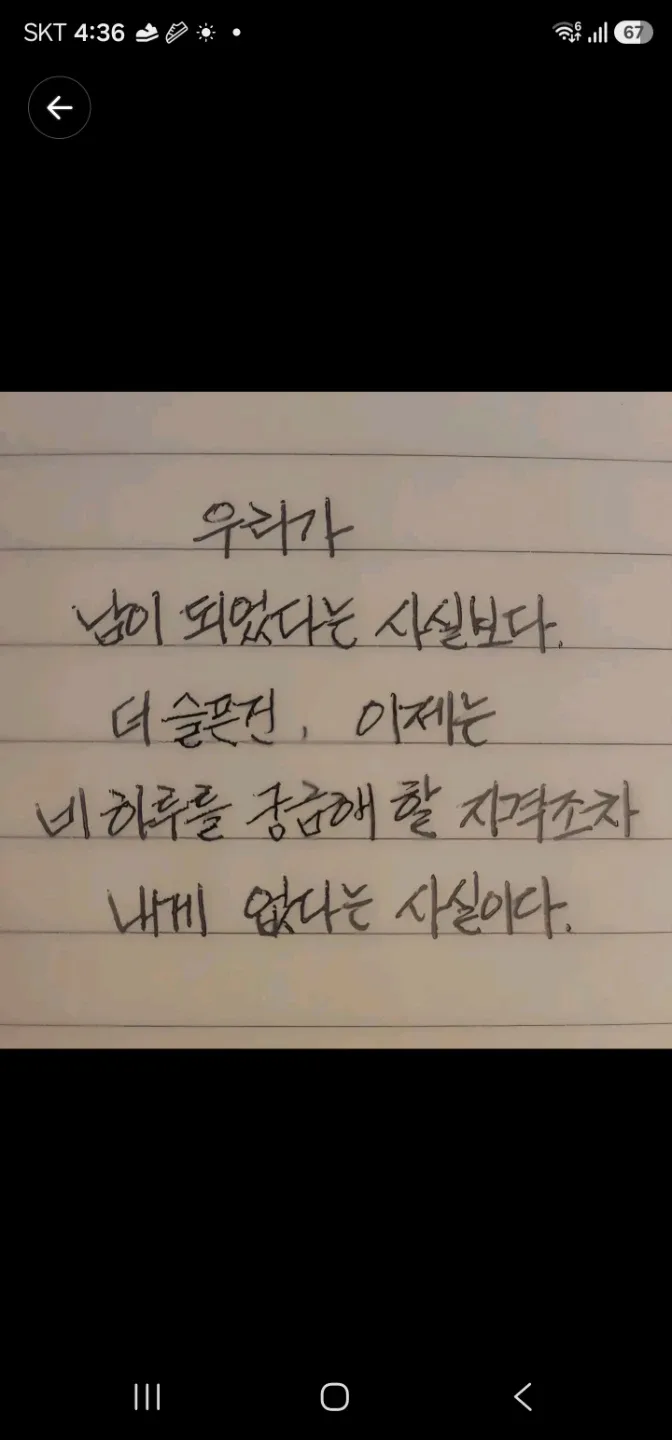 SKT 4:36
67
우리가
남이 되었다는 사실보다.
더 슬픈건, 이제는
네 하루를 궁금해 할 자격조차
내게 없다는 사실이다.